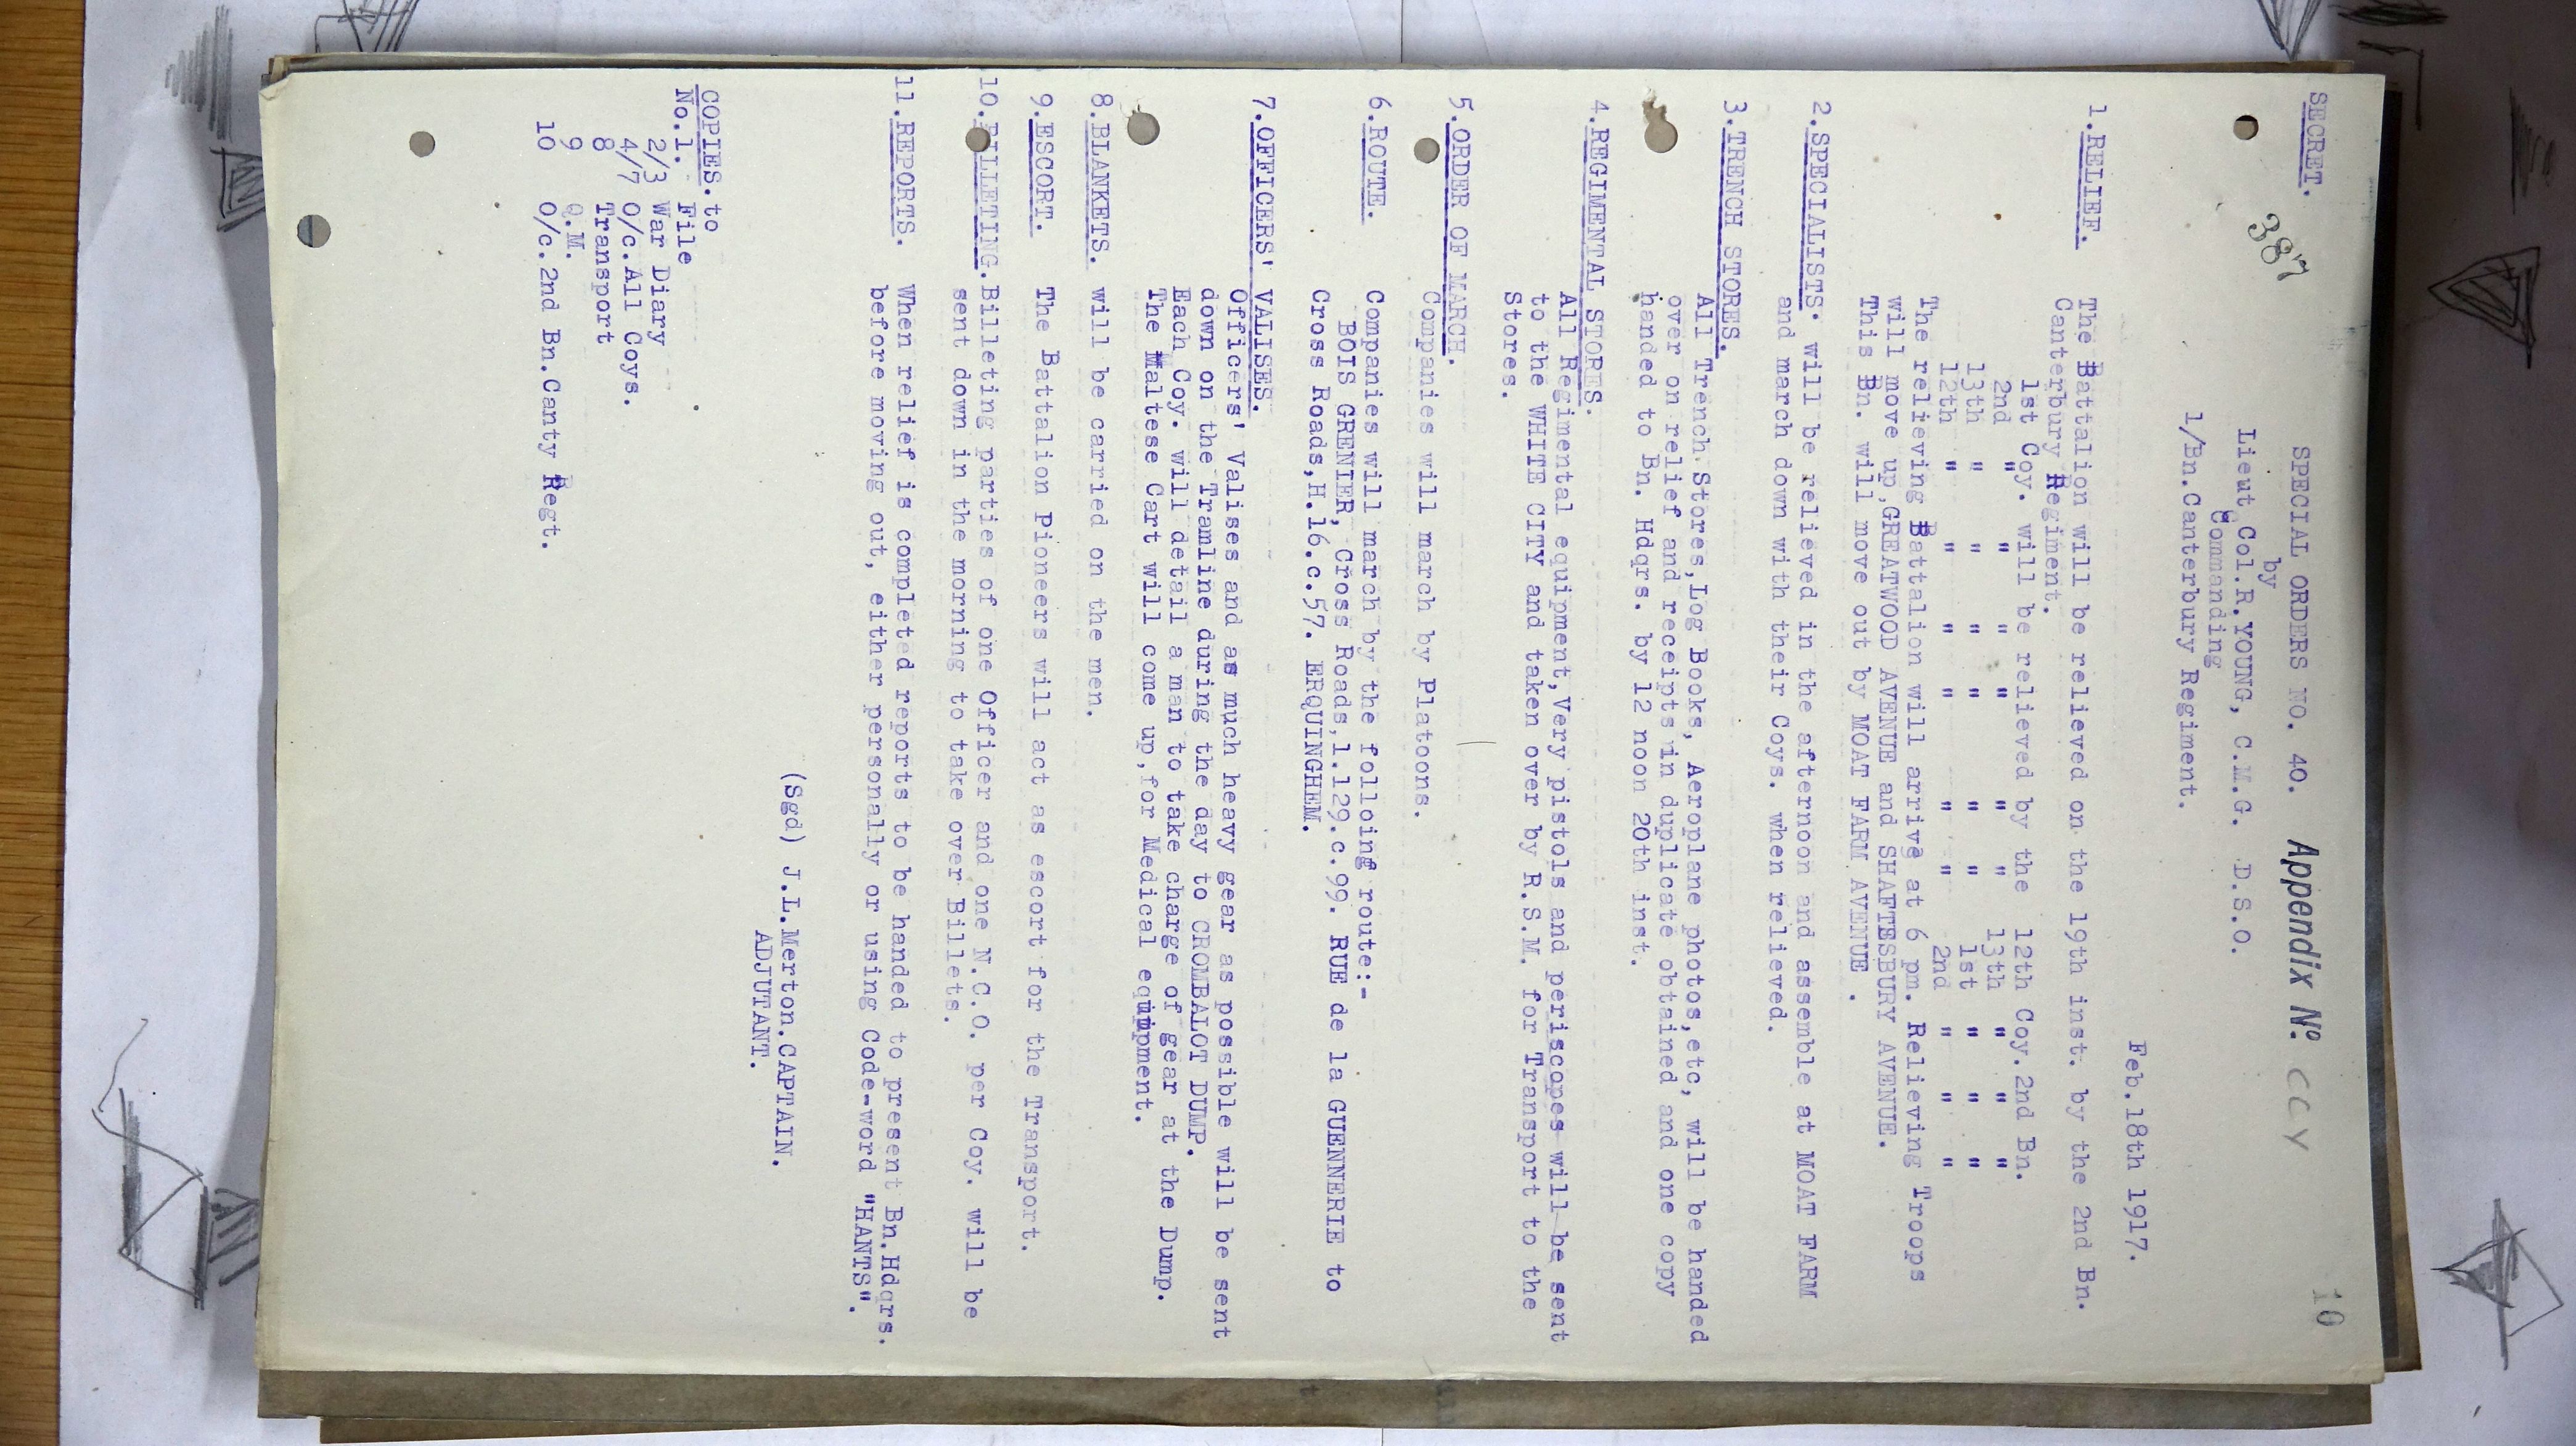 SECRET.
387
10
SPECIAL ORDERS NO. 40. Appendix No. CCY
by
Lieut Col.R.YOUNG, C.M.G. D.S.O.
Commanding
1/Bn.Canterbury Regiment.
Feb.18th 1917.
1.RELIEF. The Battalion will be relieved on the 19th inst. by the 2nd Bn.
Canterbury Regiment.
1st Coy. will be relieved by the 12th Coy.2nd Bn.
2nd " " " " " " 13th " " "
13th " " " " " " 1st " " "
12th " " " " " " 2nd " " "
The relieving Battalion will arrive at 6 pm. Relieving Troops
will move up,GREATWOOD AVENUE and SHAFTESBURY AVENUE.
This Bn. will move out by MOAT FARM AVENUE .
2.SPECIALISTS. will be relieved in the afternoon and assemble at MOAT FARM
and march down with their Coys. when relieved.
3.TRENCH STORES.
All Trench Stores,Log Books, Aeroplane photos,etc, will be handed
over on relief and receipts in duplicate obtained and one copy
handed to Bn. Hdqrs. by 12 noon 20th inst.
4.REGIMENTAL STORES.
All Regimental equipment,Very pistols and periscopes will be sent
to the WHITE CITY and taken over by R.S.M. for Transport to the
Stores.
5.ORDER OF MARCH.
Companies will march by Platoons.
6.ROUTE. Companies will march by the folloing route:-
BOIS GRENIER, Cross Roads,1.129.c.99. RUE de la GUENNERIE to
Cross Roads,H.16.c.57. ERQUINGHEM.
7.OFFICERS' VALISES.
Officers' Valises and as much heavy gear as possible will be sent
down on the Tramline during the day to CROMBALOT DUMP.
Each Coy. will detail a man to take charge of gear at the Dump.
The Maltese Cart will come up,for Medical equipment.
8.BLANKETS. will be carried on the men.
9.ESCORT. The Battalion Pioneers will act as escort for the Transport.
10.BILLETING.Billeting parties of one Officer and one N.C.O. per Coy. will be
sent down in the morning to take over Billets.
11.REPORTS. When relief is completed reports to be handed to present Bn.Hdqrs.
before moving out, either personally or using Code-word "HANTS".
(Sgd) J.L.Merton.CAPTAIN.
ADJUTANT.
COPIES.to
No.1. File
2/3 War Diary
4/7 O/c.All Coys.
8 Transport
9 Q.M.
10 O/c.2nd Bn.Canty Regt.